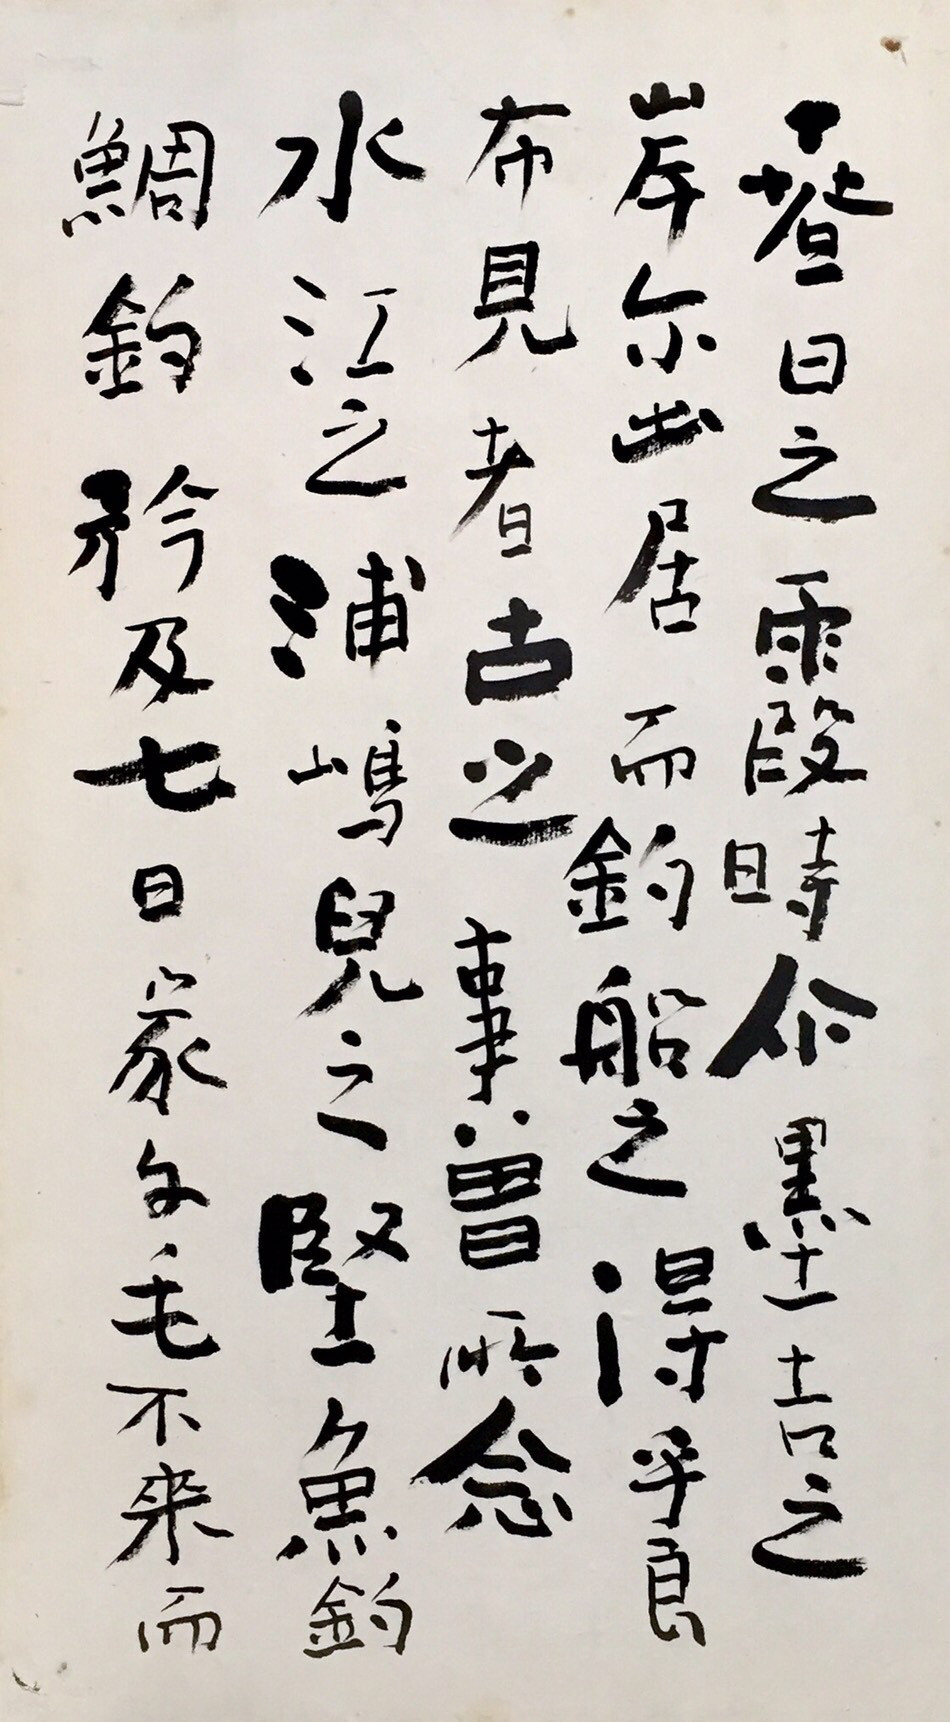 春日之霞時尒墨吉之
岸尓出居而釣船之得乎良
布見者古之事曽所念
水江之浦嶋兒之堅魚釣
鯛釣矜及七日家尓毛不来而